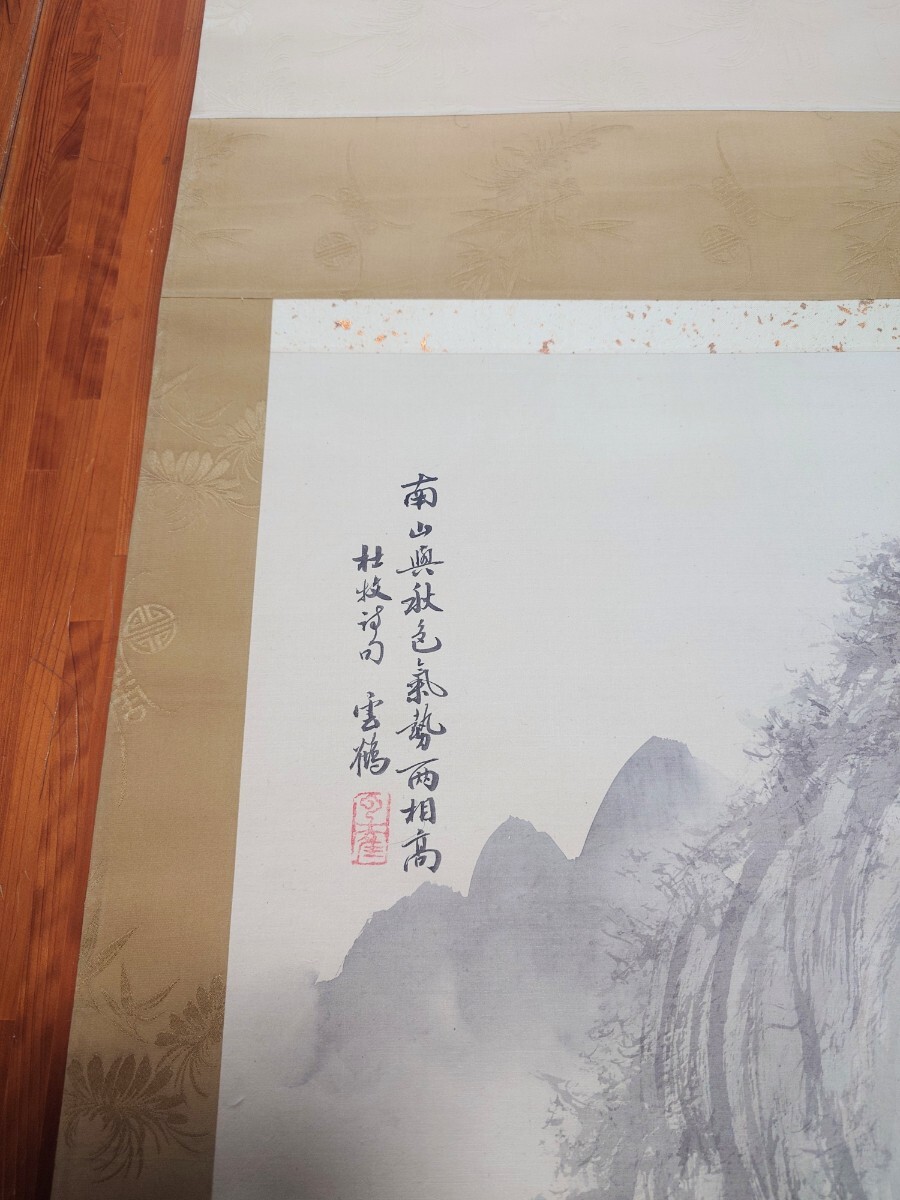 南山與秋色氣勢兩相高
杜牧詩句 雲鶴